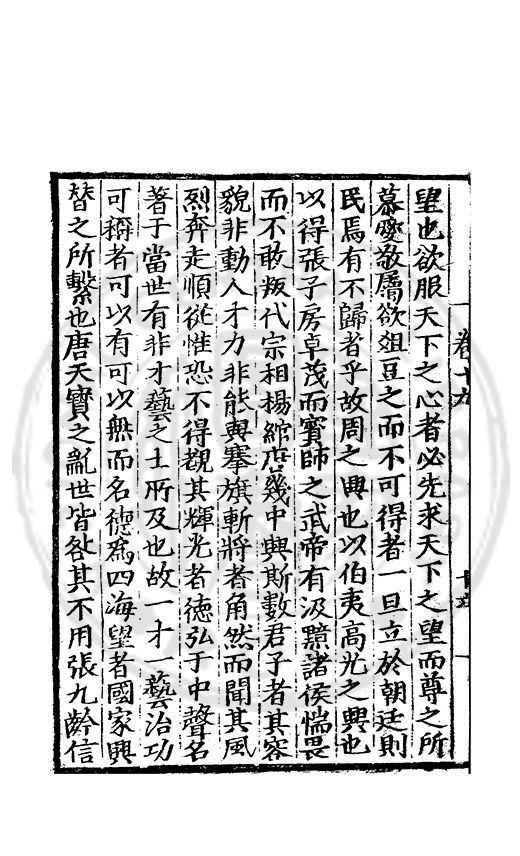 卷十九
望也欲服天下之心者必先求天下之望而尊之所
慕愛敬屬欲俎豆之而不可得者一旦立於朝廷則
民焉有不歸者乎故周之興也以伯夷高光之興也
以得張子房卓茂而賓師之武帝有汲黯諸侯惴畏
而不敢叛代宗相楊綰庶幾中興斯數君子者其容
貌非動人才力非能與搴旗斬將者角然而聞其風
烈奔走順從惟恐不得覩其輝光者徳弘于中聲名
著于當世有非才藝之士所及也故一才一藝治功
可稱者可以有可以無而名徳爲四海望者國家興
替之所繫也唐天寶之亂世皆咎其不用張九齡信